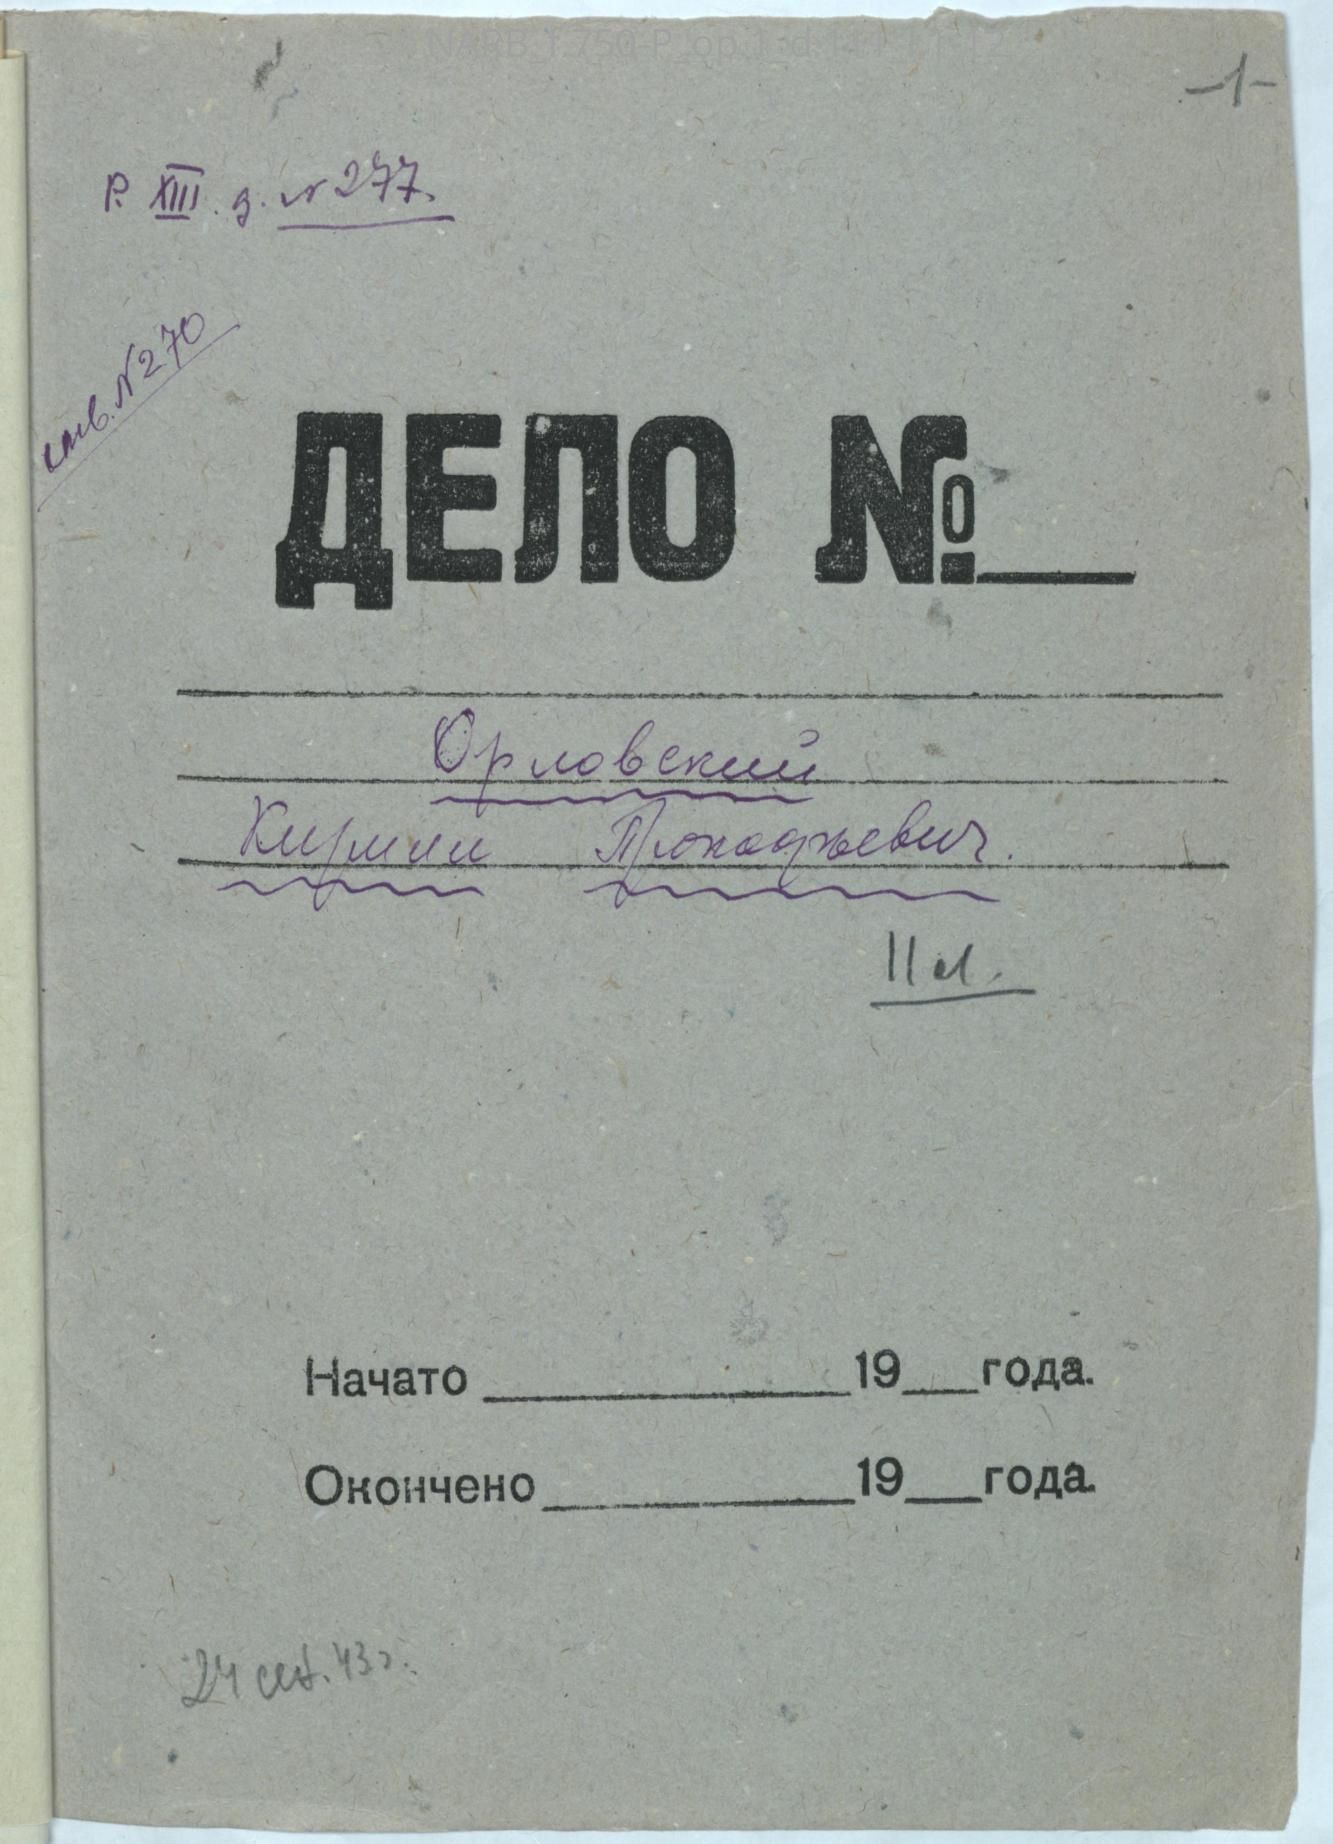 -1-
Р. XIII. д. № 277.
инв. № 270
ДЕЛО №
Орловский
Кирилл Прокофьевич.
11 л.
Начато 19 года.
Окончено 19 года.
24 сент. 43 г.